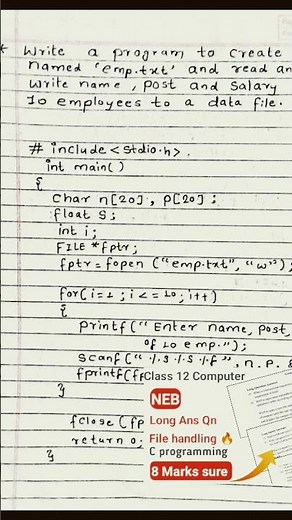 * Write a program to create
named 'emp.txt' and read an
write name, post and salary
10 employees to a data file.
# include<stdio.h>.
int main()
{
char n[20], p[20];
float s;
int i;
FILE *fptr;
fptr=fopen ("emp.txt", "w");
for(i=1 ; i<=10; i++)
{
printf("Enter name, post,
of 10 emp.");
scanf("%s%s%f", n, p, &
fprintf(fp
}
fclose (fp
return 0;
}
Class 12 Computer
NEB
Long Ans Qn
File handling 🔥
C programming
8 Marks sure